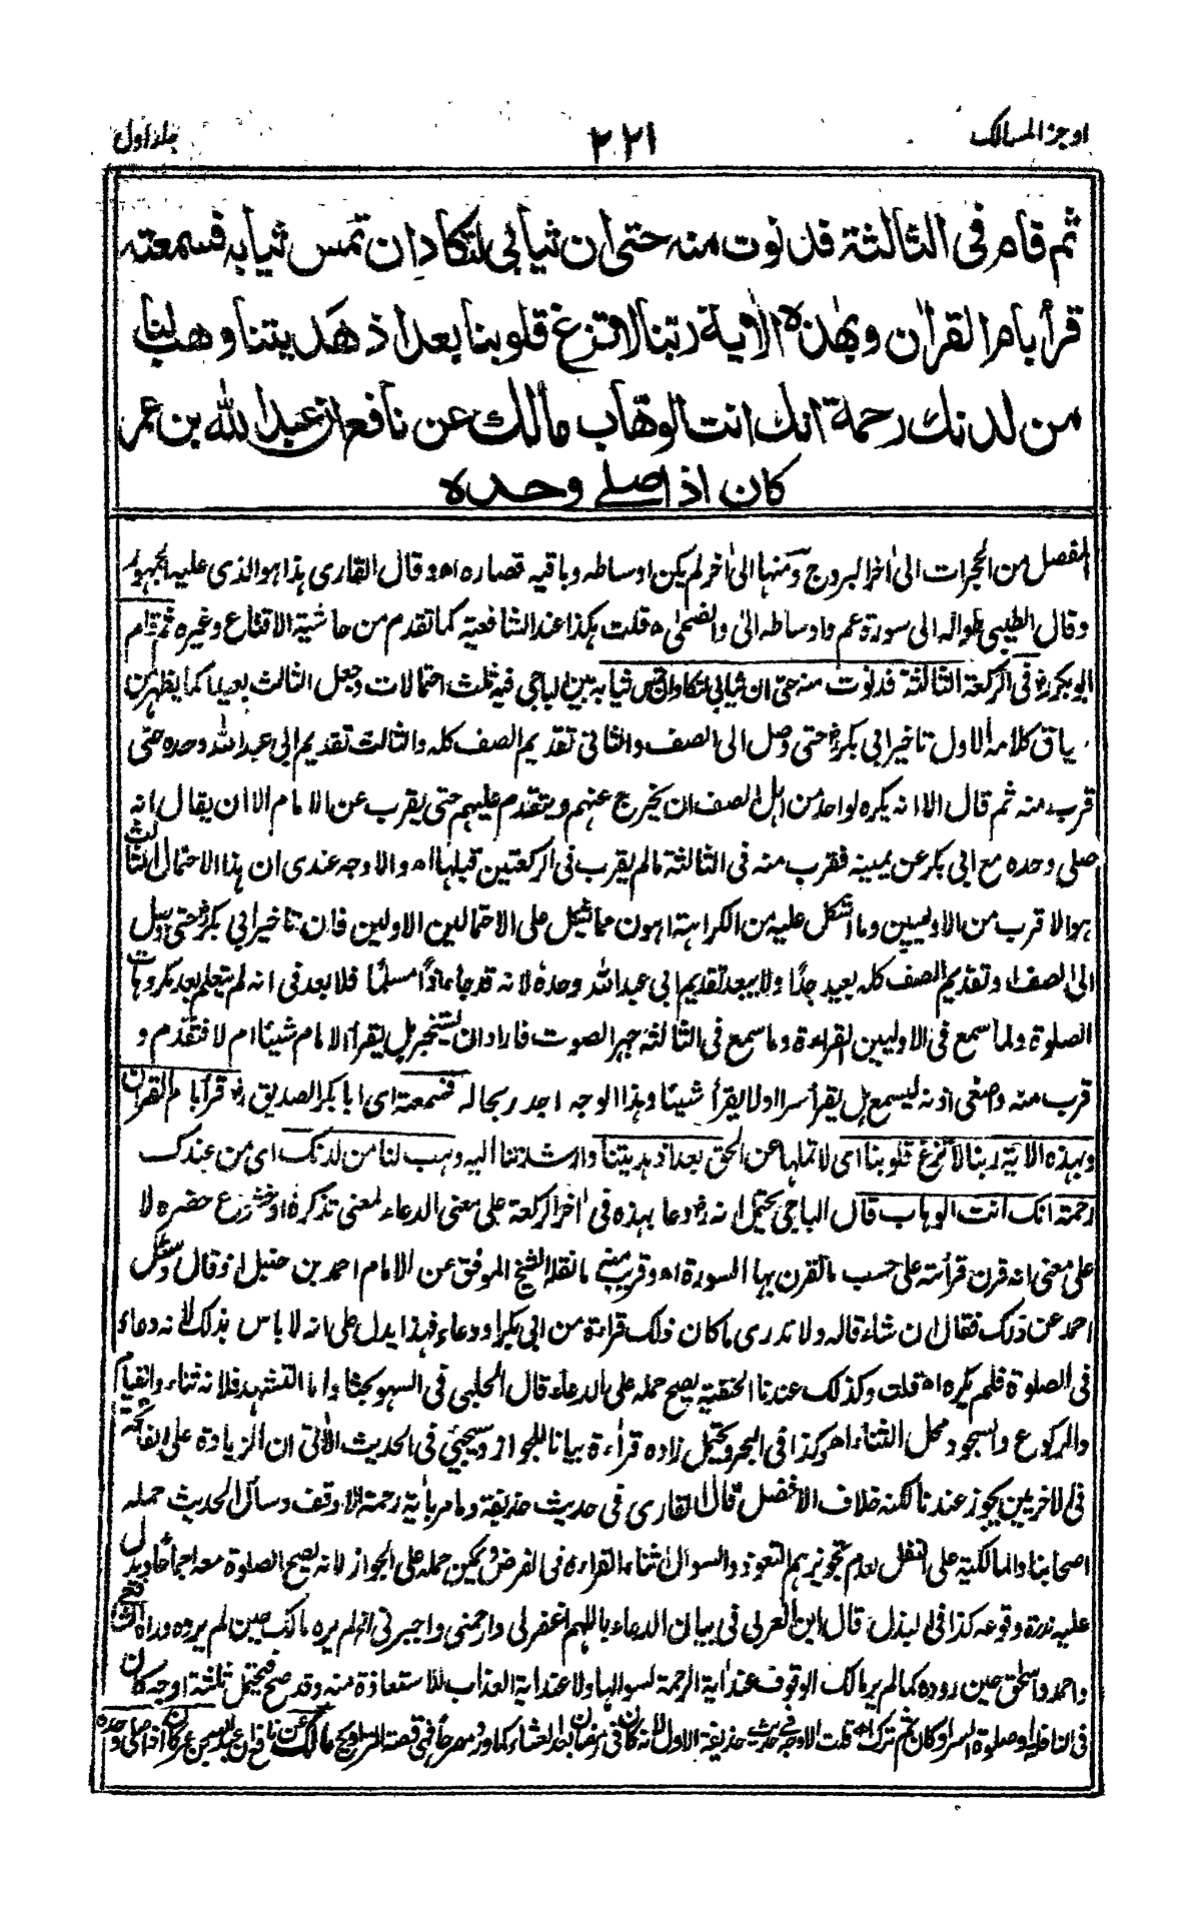 اوجز المسالك
٢٢١
جلد اول
ثم قام فى الثالثة فدنوت منه حتى ان ثيابى لتكاد ان تمس ثيابه فسمعته
قرأ بام القرآن وبهذه الآية ربنا لا تزغ قلوبنا بعد اذ هديتنا وهب لنا
من لدنك رحمة انك انت الوهاب مالك عن نافع ان عبد الله بن عمر
كان اذا صلى وحده
المفصل من الحجرات الى آخر البروج ومنها الى آخر لم يكن اوساطه وباقيه قصاره اه وقال القارى هذا هو الذى عليه الجمهور
وقال الطيبى طواله الى سورة عم واوساطه الى والضحى اه قلت هكذا عند الشافعية كما تقدم من حاشية الاقناع وغيره ثم قام
ابو بكر فى الركعة الثالثة فدنوت منه حتى ان ثيابى لتكاد ان تمس ثيابه بين الباجى فيه ثلث احتمالات وجعل الثالث بعيدا كما يظهر من
سياق كلامه الاول تاخير ابى بكر حتى وصل الى الصف والثانى تقديم الصف كله والثالث تقديم ابى عبد الله وحده حتى
قرب منه ثم قال الا انه يكره لواحد من اهل الصف ان يخرج عنهم ويتقدم عليهم حتى يقرب عن الامام الا ان يقال انه
صلى وحده مع ابى بكر عن يمينه فقرب منه فى الثالثة ما لم يقرب فى الركعتين قبلها اه والاوجه عندى ان هذا الاحتمال الثالث
هو الاقرب من الاوليين وما اشكل عليه من الكراهة اهون مما يشكل على الاحتمالين الاولين فان تاخير ابى بكر حتى يصل
الى الصف او تقديم الصف كله بعيد جدا ولا يبعد تقديم ابى عبد الله وحده لانه قد جاء مسلما فلا بعد فى انه لم يتعلم بعد مكروهات
الصلوة ولما سمع فى الاوليين القراءة وما سمع فى الثالثة جهر الصوت فاراد ان يستخبر هل يقرأ الامام شيئا ام لا فتقدم و
قرب منه واصغى اذنه ليسمع هل يقرأ سرا او لا يقرأ شيئا وهذا الوجه اجدر بحاله فسمعته اى ابا بكر الصديق قرأ بام القرآن
وبهذه الآية ربنا لا تزغ قلوبنا اى لا تملها عن الحق بعد اذ هديتنا وارشدتنا اليه وهب لنا من لدنك اى من عندك
رحمة انك انت الوهاب قال الباجى يحتمل انه دعا بهذه فى آخر الركعة على معنى الدعاء لمعنى تذكره او خشوع حضره لا
على معنى انه قرن قراءته على حسب ما تقرن بها السورة اه وقريب منه ما نقله الشيخ الموفق عن الامام احمد بن حنبل اذ قال وسئل
احمد عن ذلك فقال ان شاء قاله ولا ندرى ما كان ذلك قراءة من ابى بكر او دعاء فهذا يدل على انه لا باس بذلك لانه دعاء
فى الصلوة فلم يكره اه قلت وكذلك عندنا الحنفية يصح حمله على الدعاء قال الحلبى فى السهو بحثا واما التشهد فلانه ثناء والقيام
والركوع والسجود محل الثناء اه وكذا فى البحر ويحتمل زاده قراءة بيانا للجواز وسيجئ فى الحديث الآتى ان الزيادة على الفاتحة
فى الاخريين يجوز عندنا لكنه خلاف الافضل قال القارى فى حديث حذيفة وما مر بآية رحمة الا وقف وسأل الحديث حمله
اصحابنا والمالكية على النفل لعدم تجويزهم التعوذ والسؤال اثناء القراءة فى الفرض ويمكن حمله على الجواز لانه يصح الصلوة معه اجماعا ويدل
عليه ندرة وقوعه كذا فى البذل قال ابن العربى فى بيان الدعاء باللهم اغفر لى وارحمنى واجبرنى الخ لم يره مالك حين لم يروه ورآه الشافعى
واحمد واسحق حين رووه كما لم ير مالك الوقوف عند آية الرحمة لسوالها ولا عند آية العذاب للاستعاذة منه وقد صح فيحتمل ثلثة اوجه كان
فى النافلة او صلوة السر او كان ثم ترك اه قلت الاوجه فى حديث حذيفة الاول لانه كان فى رمضان بعد العشاء كما ورد مصرحا فى قصة التراويح مالك عن نافع ان عبد الله بن عمر كان اذا صلى وحده